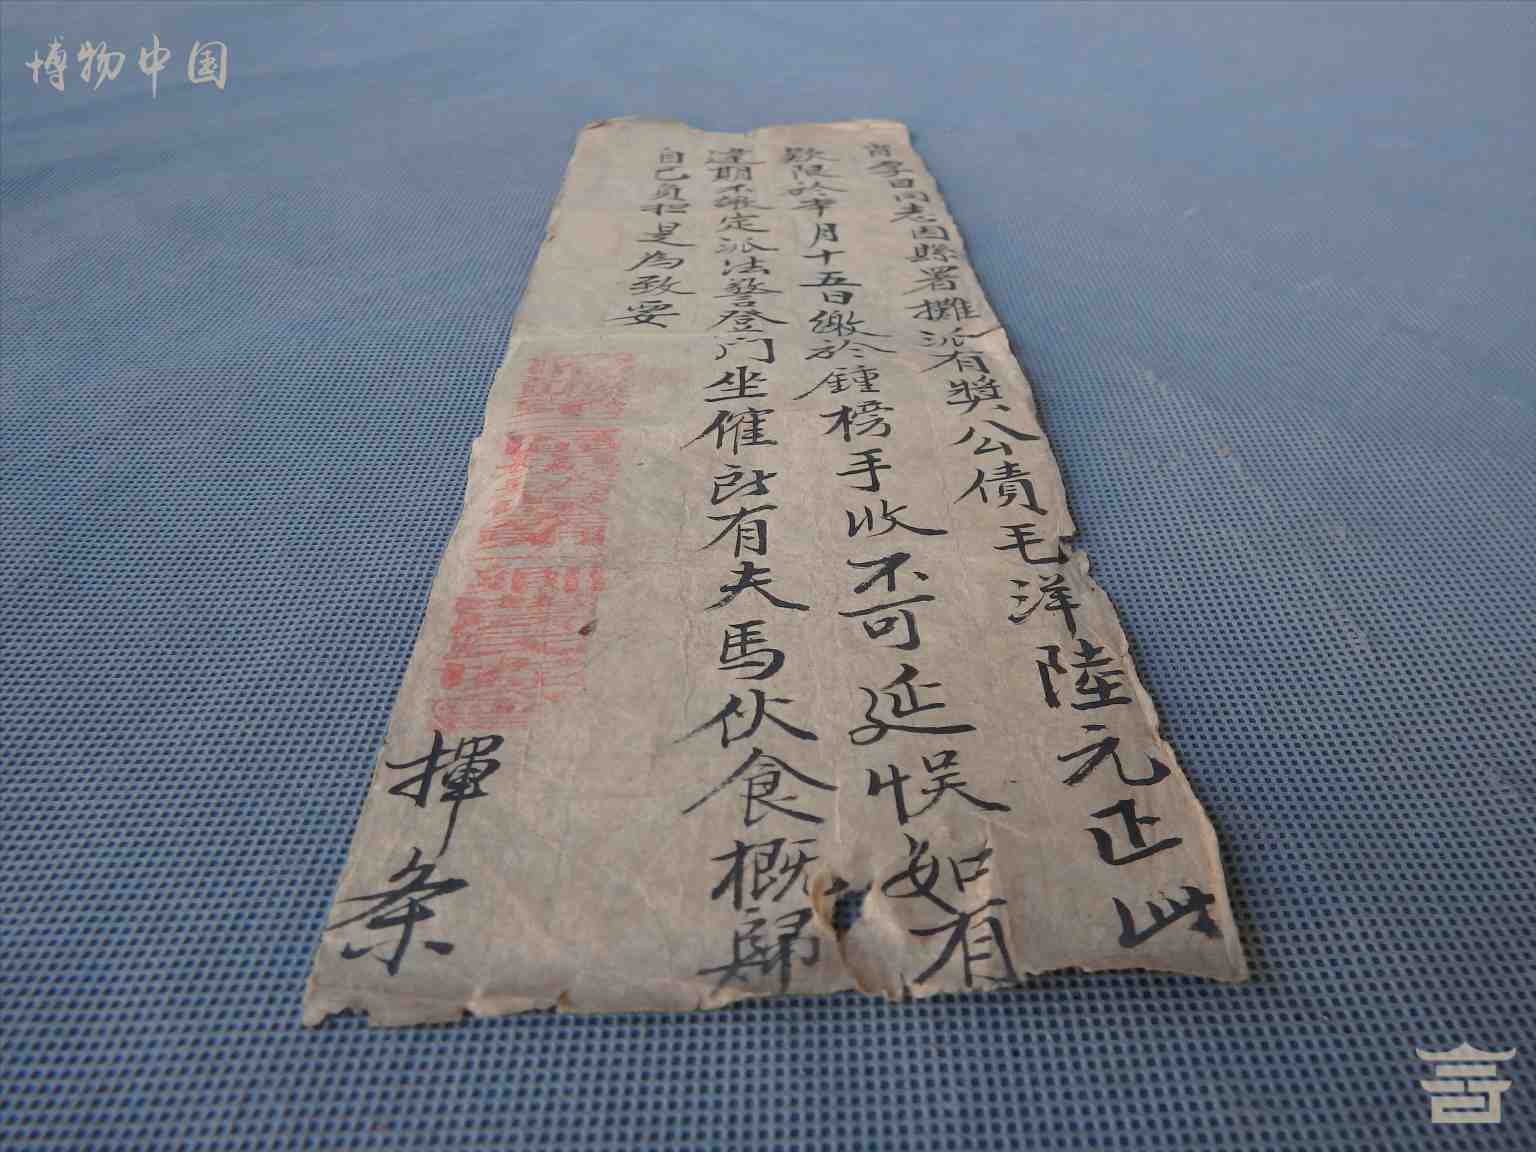 博物中国
李日同志因縣署攤派有獎公債毛洋陸元正此
欵限於本月十五日繳於鍾榜手收不可延悮如有
違期不繳定派法警登门坐催所有夫馬伙食概歸
自己負担是為致要
揮条